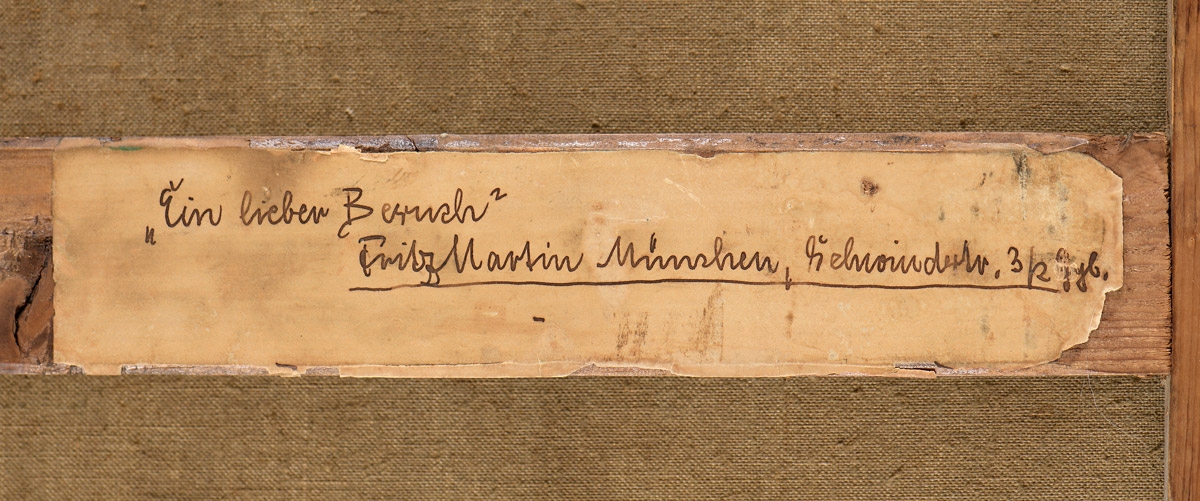 „Ein lieber Besuch"
Fritz Martin München, Schwindstr. 3/2 Ggb.